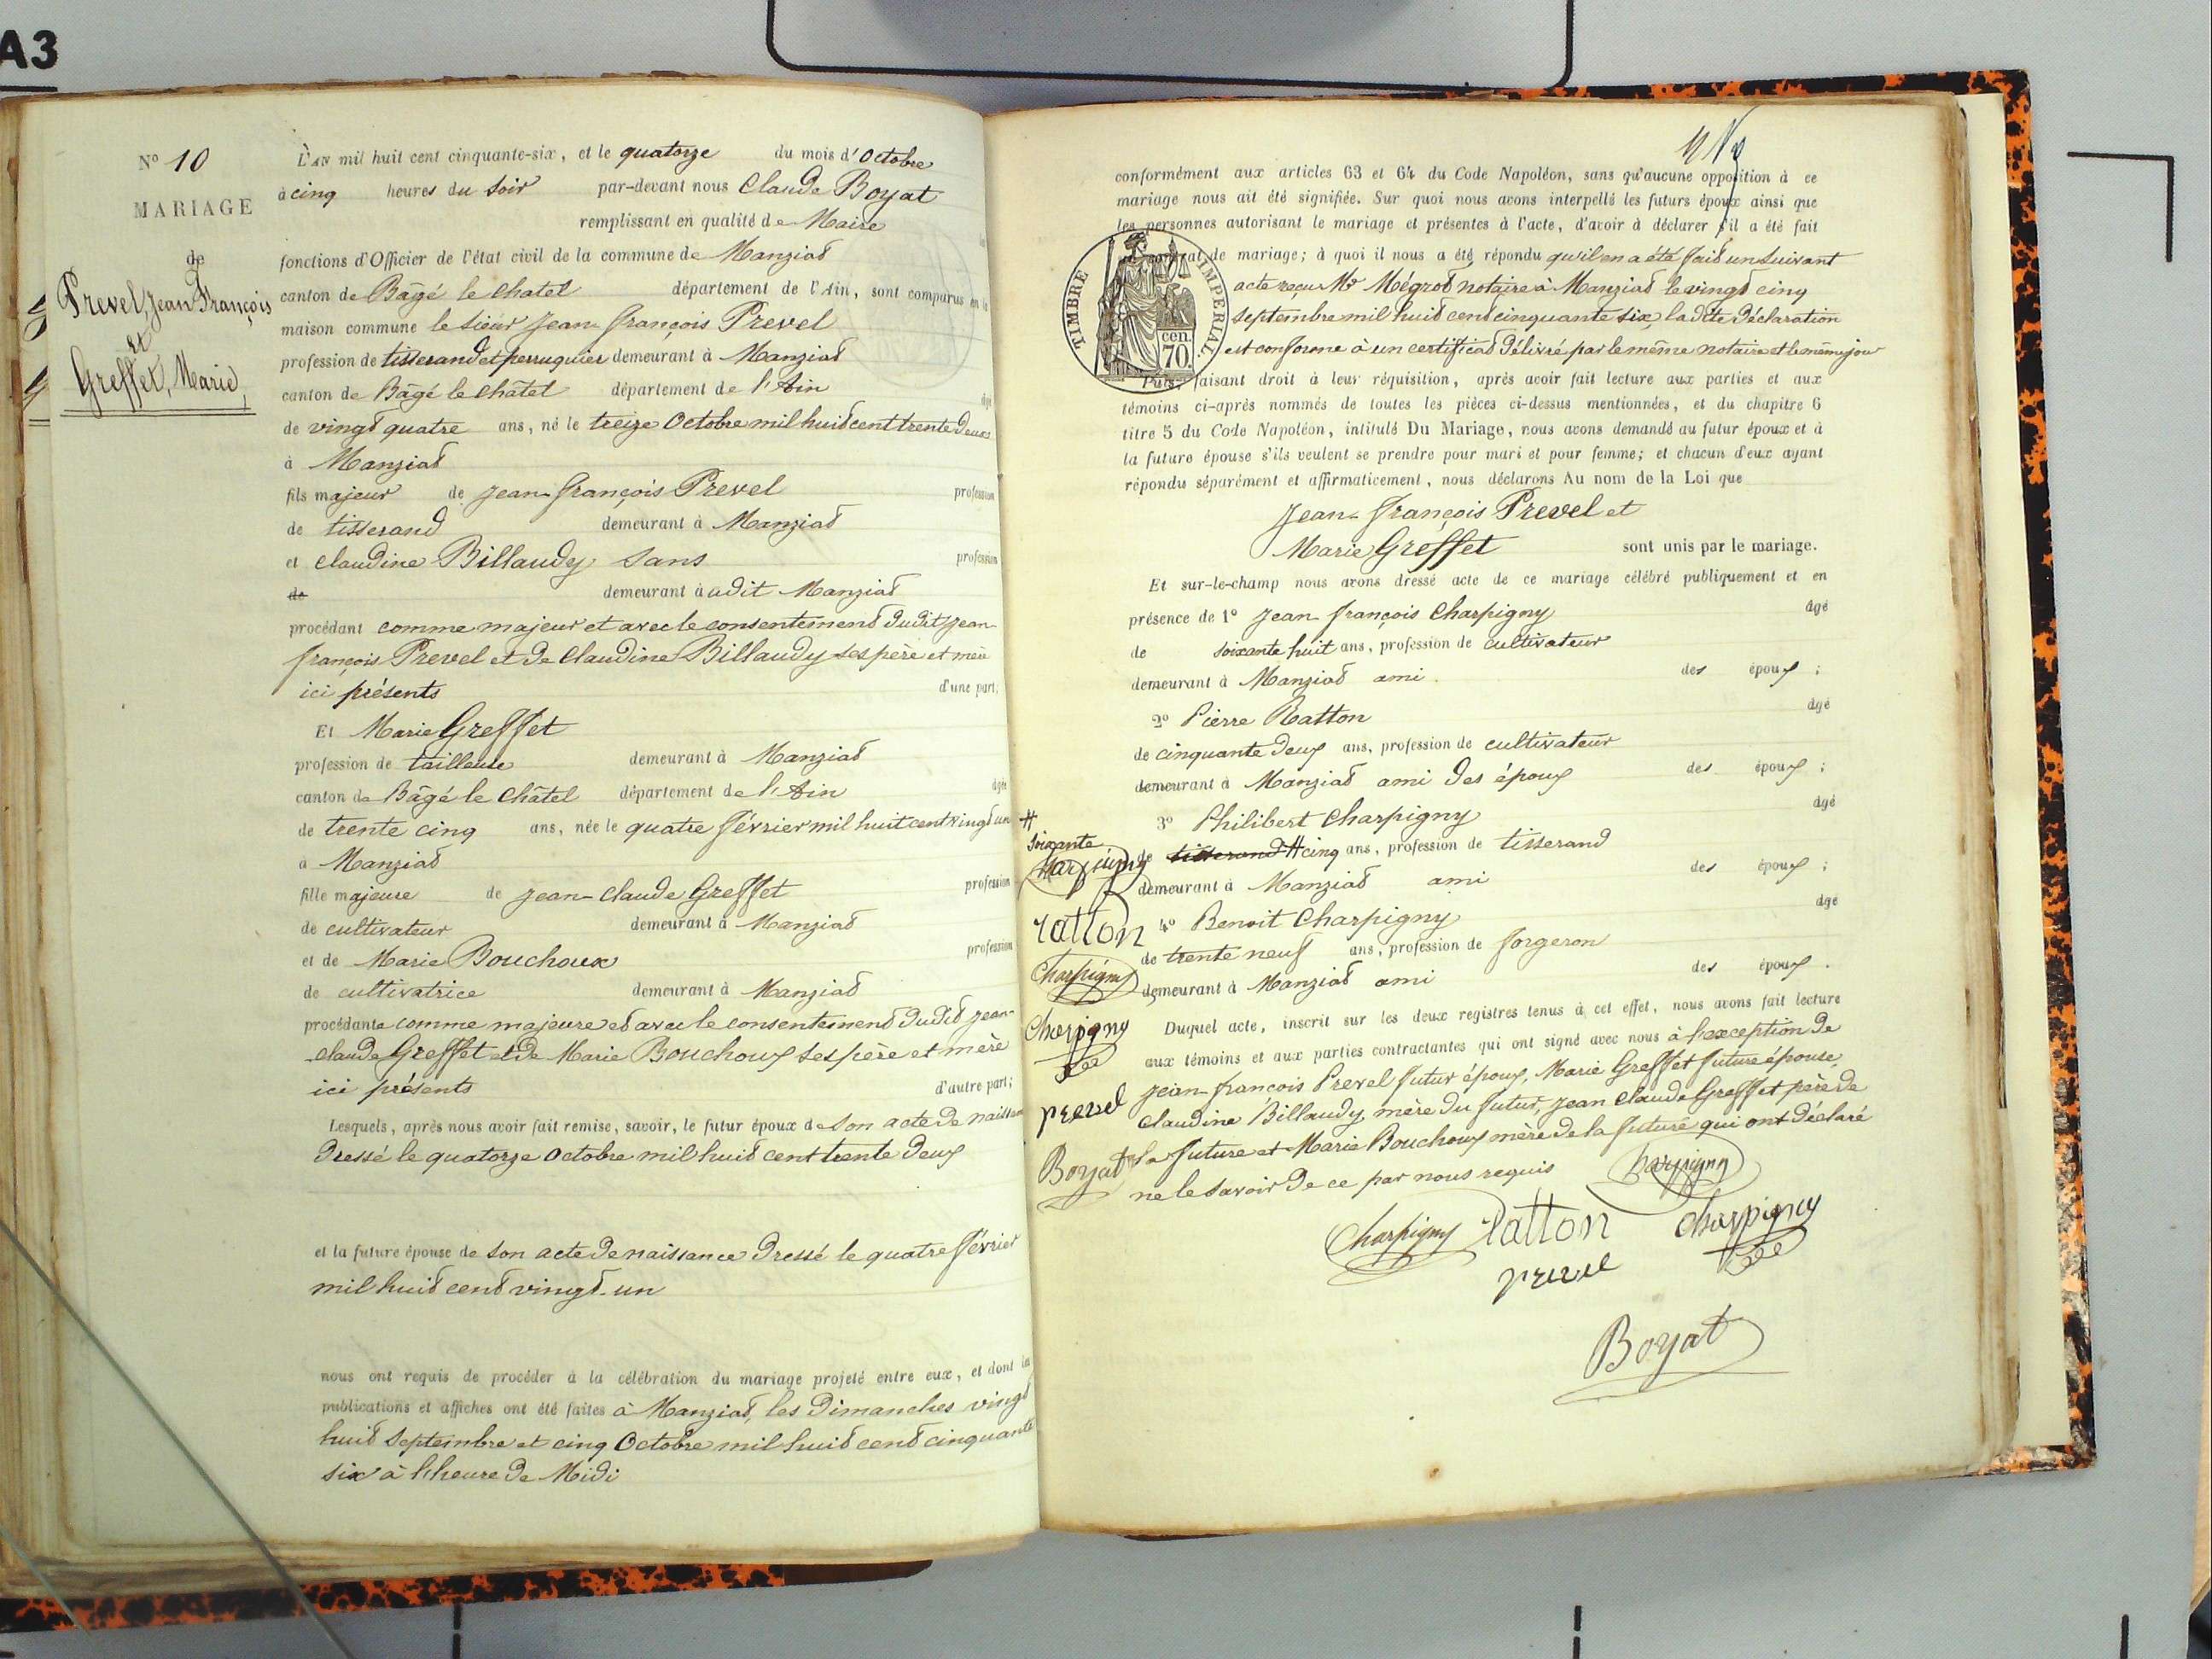 A3
N° 10
MARIAGE
de
Prevel, Jean François
et
Greffet, Marie,
L'AN mil huit cent cinquante-six, et le quatorze du mois d'Octobre
à cinq heures du Soir par-devant nous Claude Boyat
remplissant en qualité de Maire
fonctions d'Officier de l'état civil de la commune de Manziat
canton de Bâgé le Chatel département de l'Ain, sont comparus en la
maison commune le sieur Jean-françois Prevel
profession de tisserand et perruquier demeurant à Manziat
canton de Bâgé le Châtel département de l'Ain âgé
de vingt quatre ans, né le treize Octobre mil huit cent trente deux
à Manziat
fils majeur de Jean-françois Prevel profession
de tisserand demeurant à Manziat
et Claudine Billaudy sans profession
de demeurant à udit Manziat
procédant comme majeur et avec le consentement dudit Jean-
françois Prevel et de Claudine Billaudy ses père et mère
ici présents d'une part;
Et Marie Greffet
profession de tailleuse demeurant à Manziat
canton de Bâgé le Châtel département de l'Ain âgée
de trente cinq ans, née le quatre février mil huit cent vingt un
à Manziat
fille majeure de Jean-Claude Greffet profession
de cultivateur demeurant à Manziat
et de Marie Bouchoux profession
de cultivatrice demeurant à Manziat
procédante comme majeure et avec le consentement dudit Jean-
Claude Greffet et de Marie Bouchoux ses père et mère
ici présents d'autre part;
Lesquels, après nous avoir fait remise, savoir, le futur époux de son acte de naissance
dressé le quatorze Octobre mil huit cent trente deux
et la future épouse de son acte de naissance dressé le quatre février
mil huit cent vingt-un
nous ont requis de procéder à la célébration du mariage projeté entre eux, et dont les
publications et affiches ont été faites à Manziat, les Dimanches vingt
huit Septembre et cinq Octobre mil huit cent cinquante
six à l'heure de Midi
conformément aux articles 63 et 64 du Code Napoléon, sans qu'aucune opposition à ce
mariage nous ait été signifiée. Sur quoi nous avons interpellé les futurs époux ainsi que
les personnes autorisant le mariage et présentes à l'acte, d'avoir à déclarer s'il a été fait
contrat de mariage; à quoi il nous a été répondu qu'il en a été fait un suivant
acte reçu Me Mégrot notaire à Manziat le vingt cinq
septembre mil huit cent cinquante six, la dite déclaration
est conforme à un certificat délivré par le même notaire et le même jour
TIMBRE IMPERIAL.
cen. 70.
Puis, faisant droit à leur réquisition, après avoir fait lecture aux parties et aux
témoins ci-après nommés de toutes les pièces ci-dessus mentionnées, et du chapitre 6
titre 5 du Code Napoléon, intitulé Du Mariage, nous avons demandé au futur époux et à
la future épouse s'ils veulent se prendre pour mari et pour femme; et chacun d'eux ayant
répondu séparément et affirmativement, nous déclarons Au nom de la Loi que
Jean-françois Prevel et
Marie Greffet sont unis par le mariage.
Et sur-le-champ nous avons dressé acte de ce mariage célébré publiquement et en
présence de 1° Jean-françois Charpigny âgé
de soixante huit ans, profession de cultivateur
demeurant à Manziat ami des époux;
2° Pierre Ratton âgé
de cinquante deux ans, profession de cultivateur
demeurant à Manziat ami des époux des époux;
3° Philibert Charpigny âgé
de tisserand # cinq ans, profession de tisserand
demeurant à Manziat ami des époux;
4° Benoit Charpigny âgé
de trente neuf ans, profession de forgeron
demeurant à Manziat ami des époux.
#
soixante
Charpigny
ratton
Charpigny
Charpigny
prevel
Boyat
Duquel acte, inscrit sur les deux registres tenus à cet effet, nous avons fait lecture
aux témoins et aux parties contractantes qui ont signé avec nous à l'exception de
Jean-françois Prevel futur époux, Marie Greffet future épouse,
Claudine Billaudy mère du futur, Jean Claude Greffet père de
la future et Marie Bouchoux mère de la future qui ont déclaré
ne le savoir de ce par nous requis
Charpigny
Charpigny ratton Charpigny
prevel
Boyat